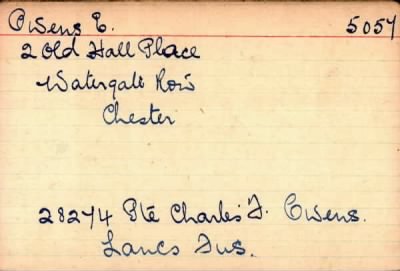 Owens E. 5057
2 Old Hall Place
Watergate Row
Chester
28274 Pte Charles F. Owens.
Lancs Fus.